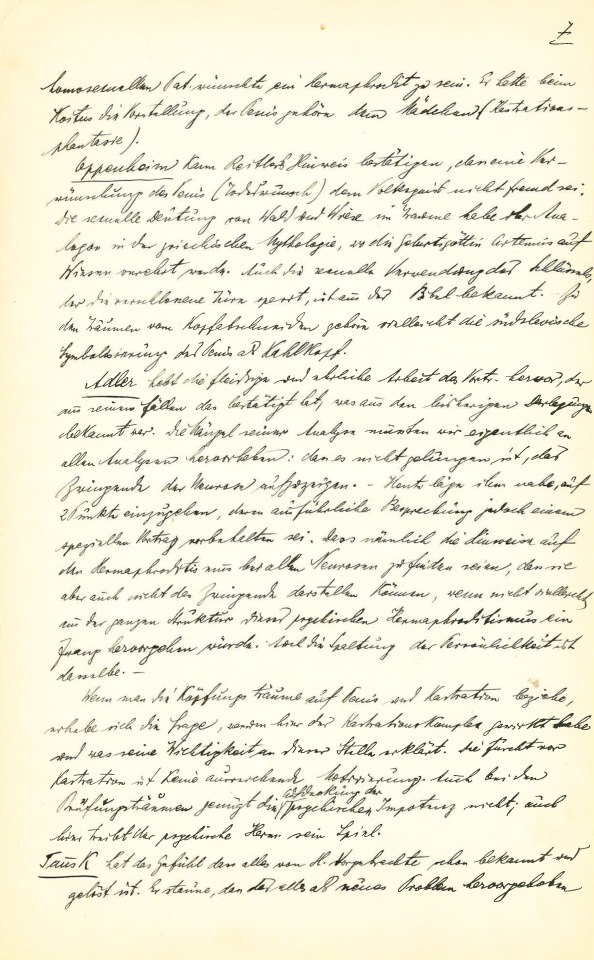 7
homosexuellen Pat. wünschte ein Hermaphrodit zu sein. Er hatte beim
Koitus die Vorstellung, der Penis gehöre dem Mädchen (Kastrations-
phantasie).
Oppenheim kann Reitlers Hinweis bestätigen, dass eine Ver-
wünschung des Penis (Todeswunsch) dem Volksgeist nicht fremd sei.
Die sexuelle Deutung von Wald und Wiese im Traume habe ihr Ana-
logon in der griechischen Mythologie, wo die Geburtsgöttin Artemis auf
Wiesen verehrt werde. Auch die sexuelle Verwendung des Schlüssels,
der die verschlossene Türe sperrt, ist aus der Bibel bekannt. - Zu
den Träumen vom Kopfabschneiden gehöre vielleicht die südslavische
Symbolisierung des Penis als Kahlkopf.
Adler hebt die fleissige und ehrliche Arbeit des Vortr. hervor, der
aus seinen Fällen das bestätigt hat, was aus den bisherigen Darlegungen
bekannt war. Die Mängel seiner Analyse müssten wir eigentlich an
allen Analysen hervorheben: dass es nicht gelungen ist, das
Zwingende der Neurose aufzuzeigen. - Heute läge ihm nahe, auf
2 Punkte einzugehen, deren ausführliche Besprechung jedoch einem
speziellen Vortrag vorbehalten sei. Dass nämlich die Hinweise auf
den Hermaphroditismus bei allen Neurosen zu finden seien, dass sie
aber auch nicht das Zwingende darstellen können, wenn nicht vielleicht
aus der ganzen Struktur dieses psychischen Hermaphroditismus ein
Zwang hervorgehen würde. Auch die Spaltung der Persönlichkeit ist
dasselbe. -
Wenn man die Köpfungsträume auf Penis und Kastration beziehe,
erhebe sich die Frage, warum hier der Kastrationskomplex gewirkt habe
und was seine Wichtigkeit an dieser Stelle erklärt. Die Furcht vor
Kastration ist keine ausreichende Motivierung. Auch bei den
Prüfungsträumen genügt die Aufdeckung der psychischen Impotenz nicht; auch
hier treibt der psychische Herm. sein Spiel.
Tausk hat das Gefühl dass alles von H. Vorgebrachte schon bekannt und
gelöst ist. Er staune, dass das alles als neues Problem hervorgehoben